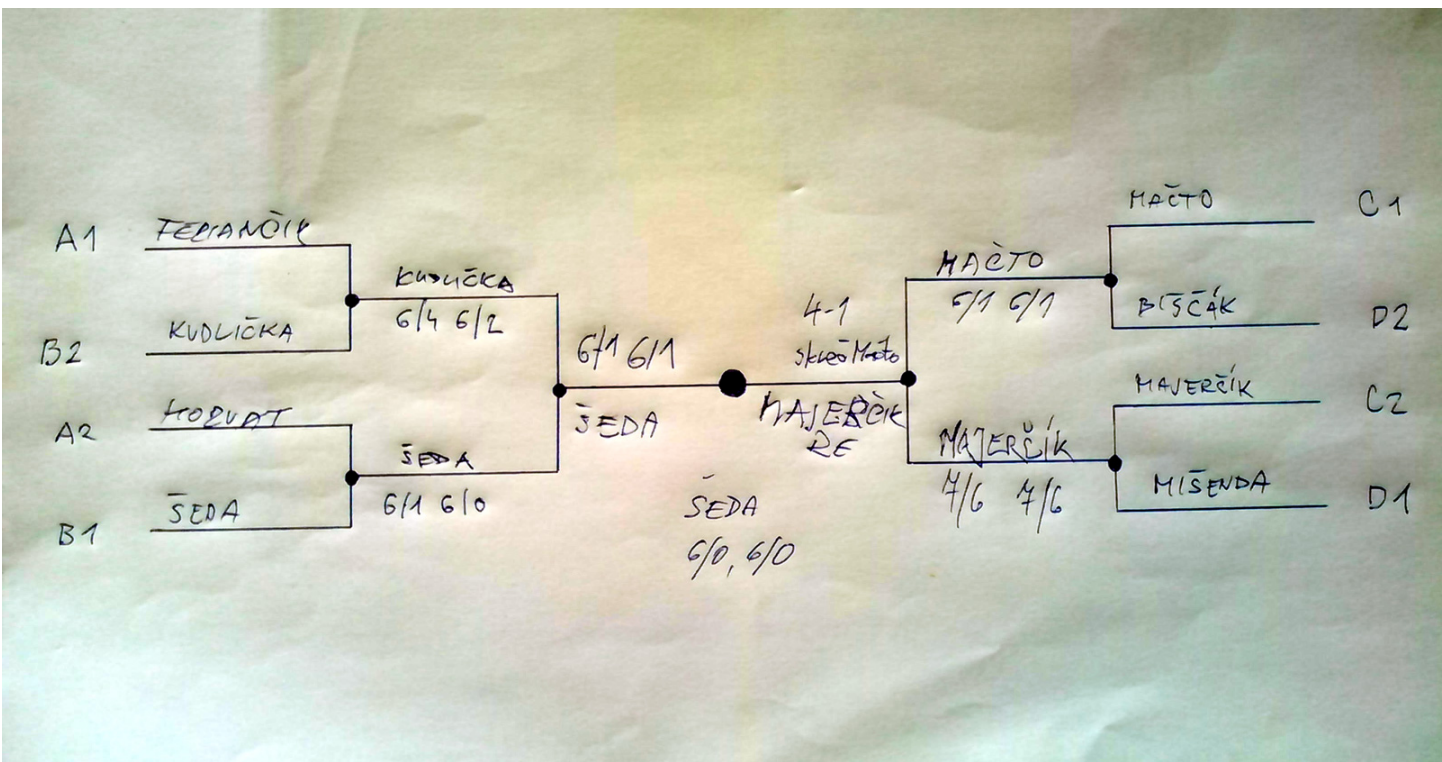 A1
KUDLIČKA
B2
KUDLIČKA
6/4 6/2
A2
HORVAT
B1
ŠEDA
ŠEDA
6/1 6/0
6/1 6/1
ŠEDA
4-1
skreč Mačto
MAJERČÍK
RE
ŠEDA
6/0, 6/0
MAČTO
6/1 6/1
MAJERČÍK
7/6 7/6
MAČTO
C1
BIŠČÁK
D2
MAJERČÍK
C2
MIŠENDA
D1